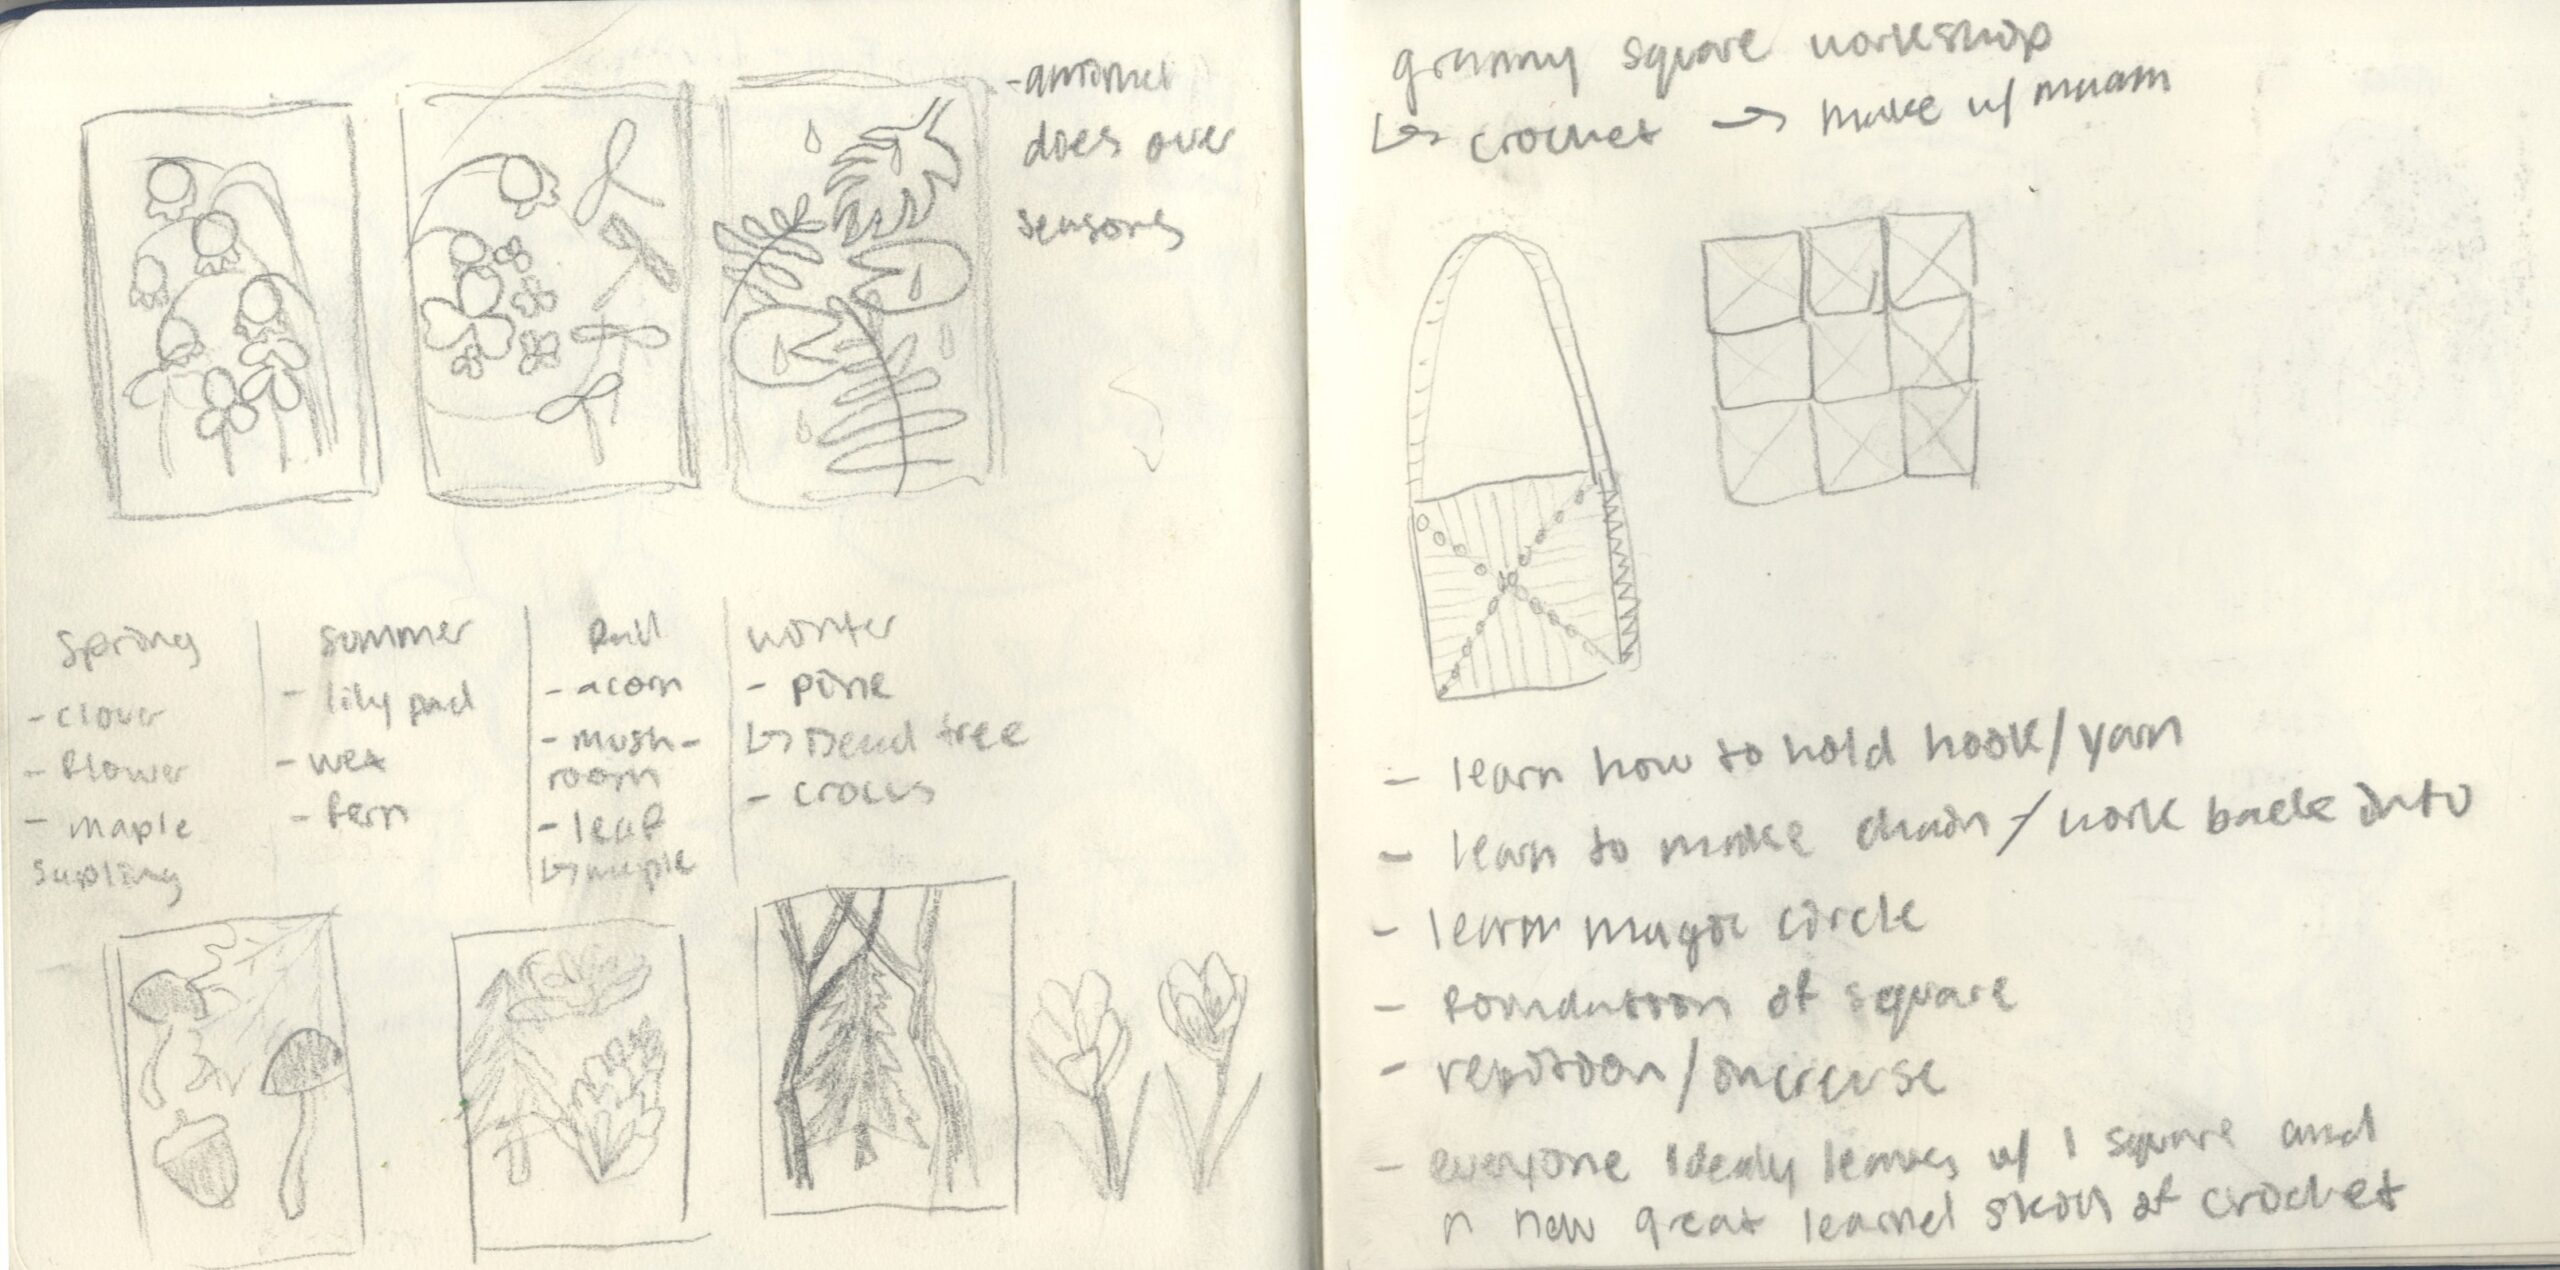 - animal
does over
seasons
Spring
- clover
- flower
- maple
sapling
summer
- lily pad
- wet
- fern
Fall
- acorn
- mush-
room
- leaf
↳ maple
winter
- pine
↳ Dead tree
- crocus
granny square workshop
↳ crochet → make w/
- learn how to hold hook/yarn
- learn to make chain / work back into
- learn magic circle
- foundation of square
- repition/increase
- everyone idealy leaves w/ 1 square and
a new great learned skill of crochet